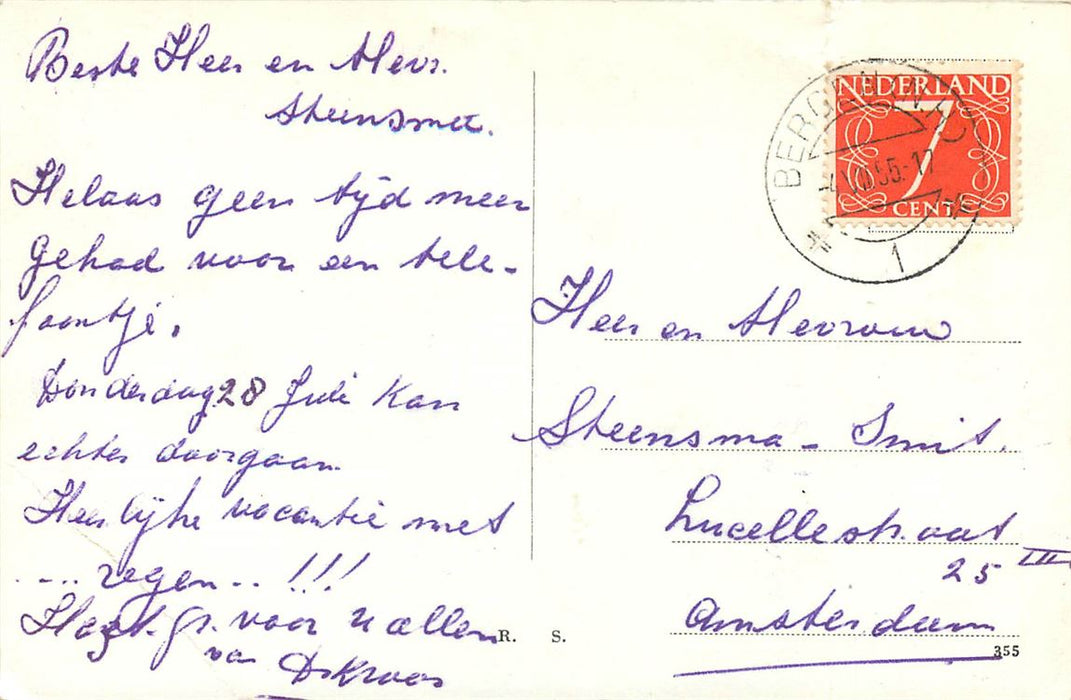 Beste Heer en Mevr.
Steensma.
Helaas geen tijd meer
gehad voor een tele-
foontje.
Donderdag 28 Juli kan
echter doorgaan
Heerlijke vacantie met
.... regen .. !!!
Hart. gr. voor u allen
van
NEDERLAND
7
CENT
BERGEN
55.-17
1
Heer en Mevrouw
Steensma - Smit.
Lucellestraat
25 III
Amsterdam
R. S.
355